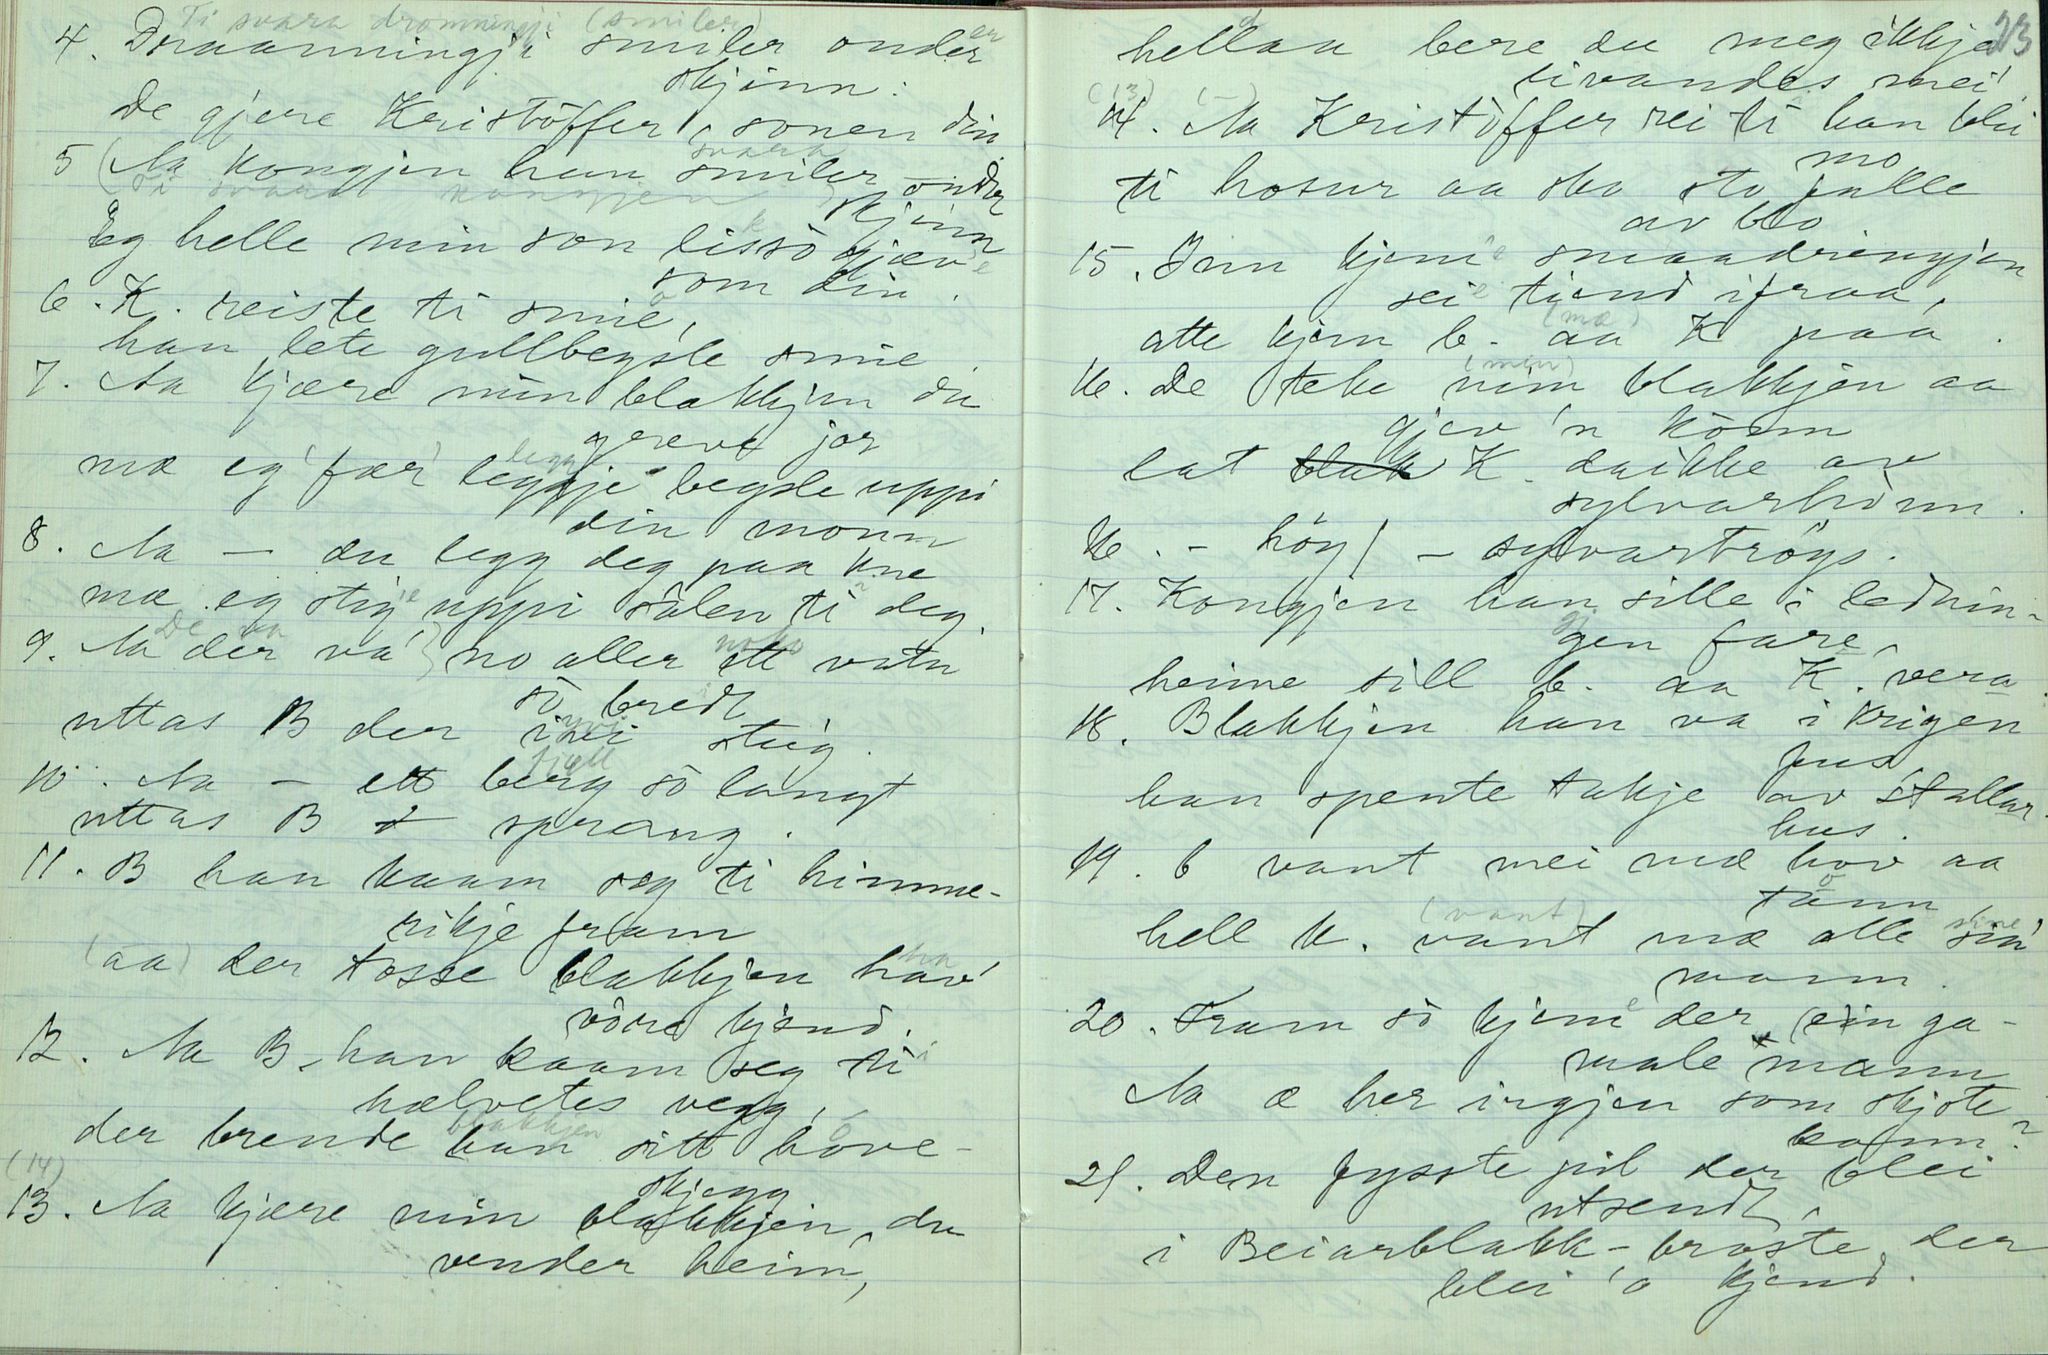 Ti svara dronningji (smiler)
4. Draanningji smiler onder
skjinn:
De gjere Kristöffer, sonen din.
5 (Aa kongjen han smiler onder
svara
Ti svara kongjen
skjinn
Eg helle min son lissö gjæv
som din.
6. K. reiste ti smie,
han lete gullbegsle smie.
7. Aa kjære min blakkjen du
greve jor
mæ eg fær leggje begsle uppi
din monn
8. Aa — du legg deg paa kne
mæ eg stig uppi sålen ti deg.
De va
9. Aa der va no aller ett vatn
noko
så bredt
uttas B der ivi stig.
fjell
10. Aa — ett berg sö langt
uttas B sprang.
11. B han kaam seg ti himme-
rikje fram
(aa) der tosse blakkjen hav
ha
vöre kjend.
12. Aa B, han kaam seg ti
hælvetes vegg,
der brende han sitt hove-
blakkjen
(14) skjegg
13. Aa kjære min blakkjen, du
vender heim,
23
hellaa bere du meg ikkje
livandes mei.
(13) (-)
14. Aa Kristöffer rei ti han blei
mo
ti hosur aa sko sto fulle
av blo
15. Inn kjem smaadrengjen
sei tiend ifraa,
(mæ)
atte kjem b. aa K paa.
(min)
16. De teke nim blakkjen aa
gjev 'n körn
lat K. daikke av
sylvarhönn.
16. - höy / - sylvartrögs.
17. Kongjen han sille i lednin-
gen fare,
heime sill b. aa K. vera.
18. Blakkjen han va i krigen
fus
han spente takje av stallar-
hus.
19. b vant mei mæ hov aa
tann,
hell K. vant mæ alle sin
(vant) sine
mann.
20. Fram sö kjem der (ein ga-
male mann
Aa æ her ingjen som skjote
kann?
21. Den fysste pil der blei
utsendt,
i Beiarblakk-broste der
blei 'o kjend.